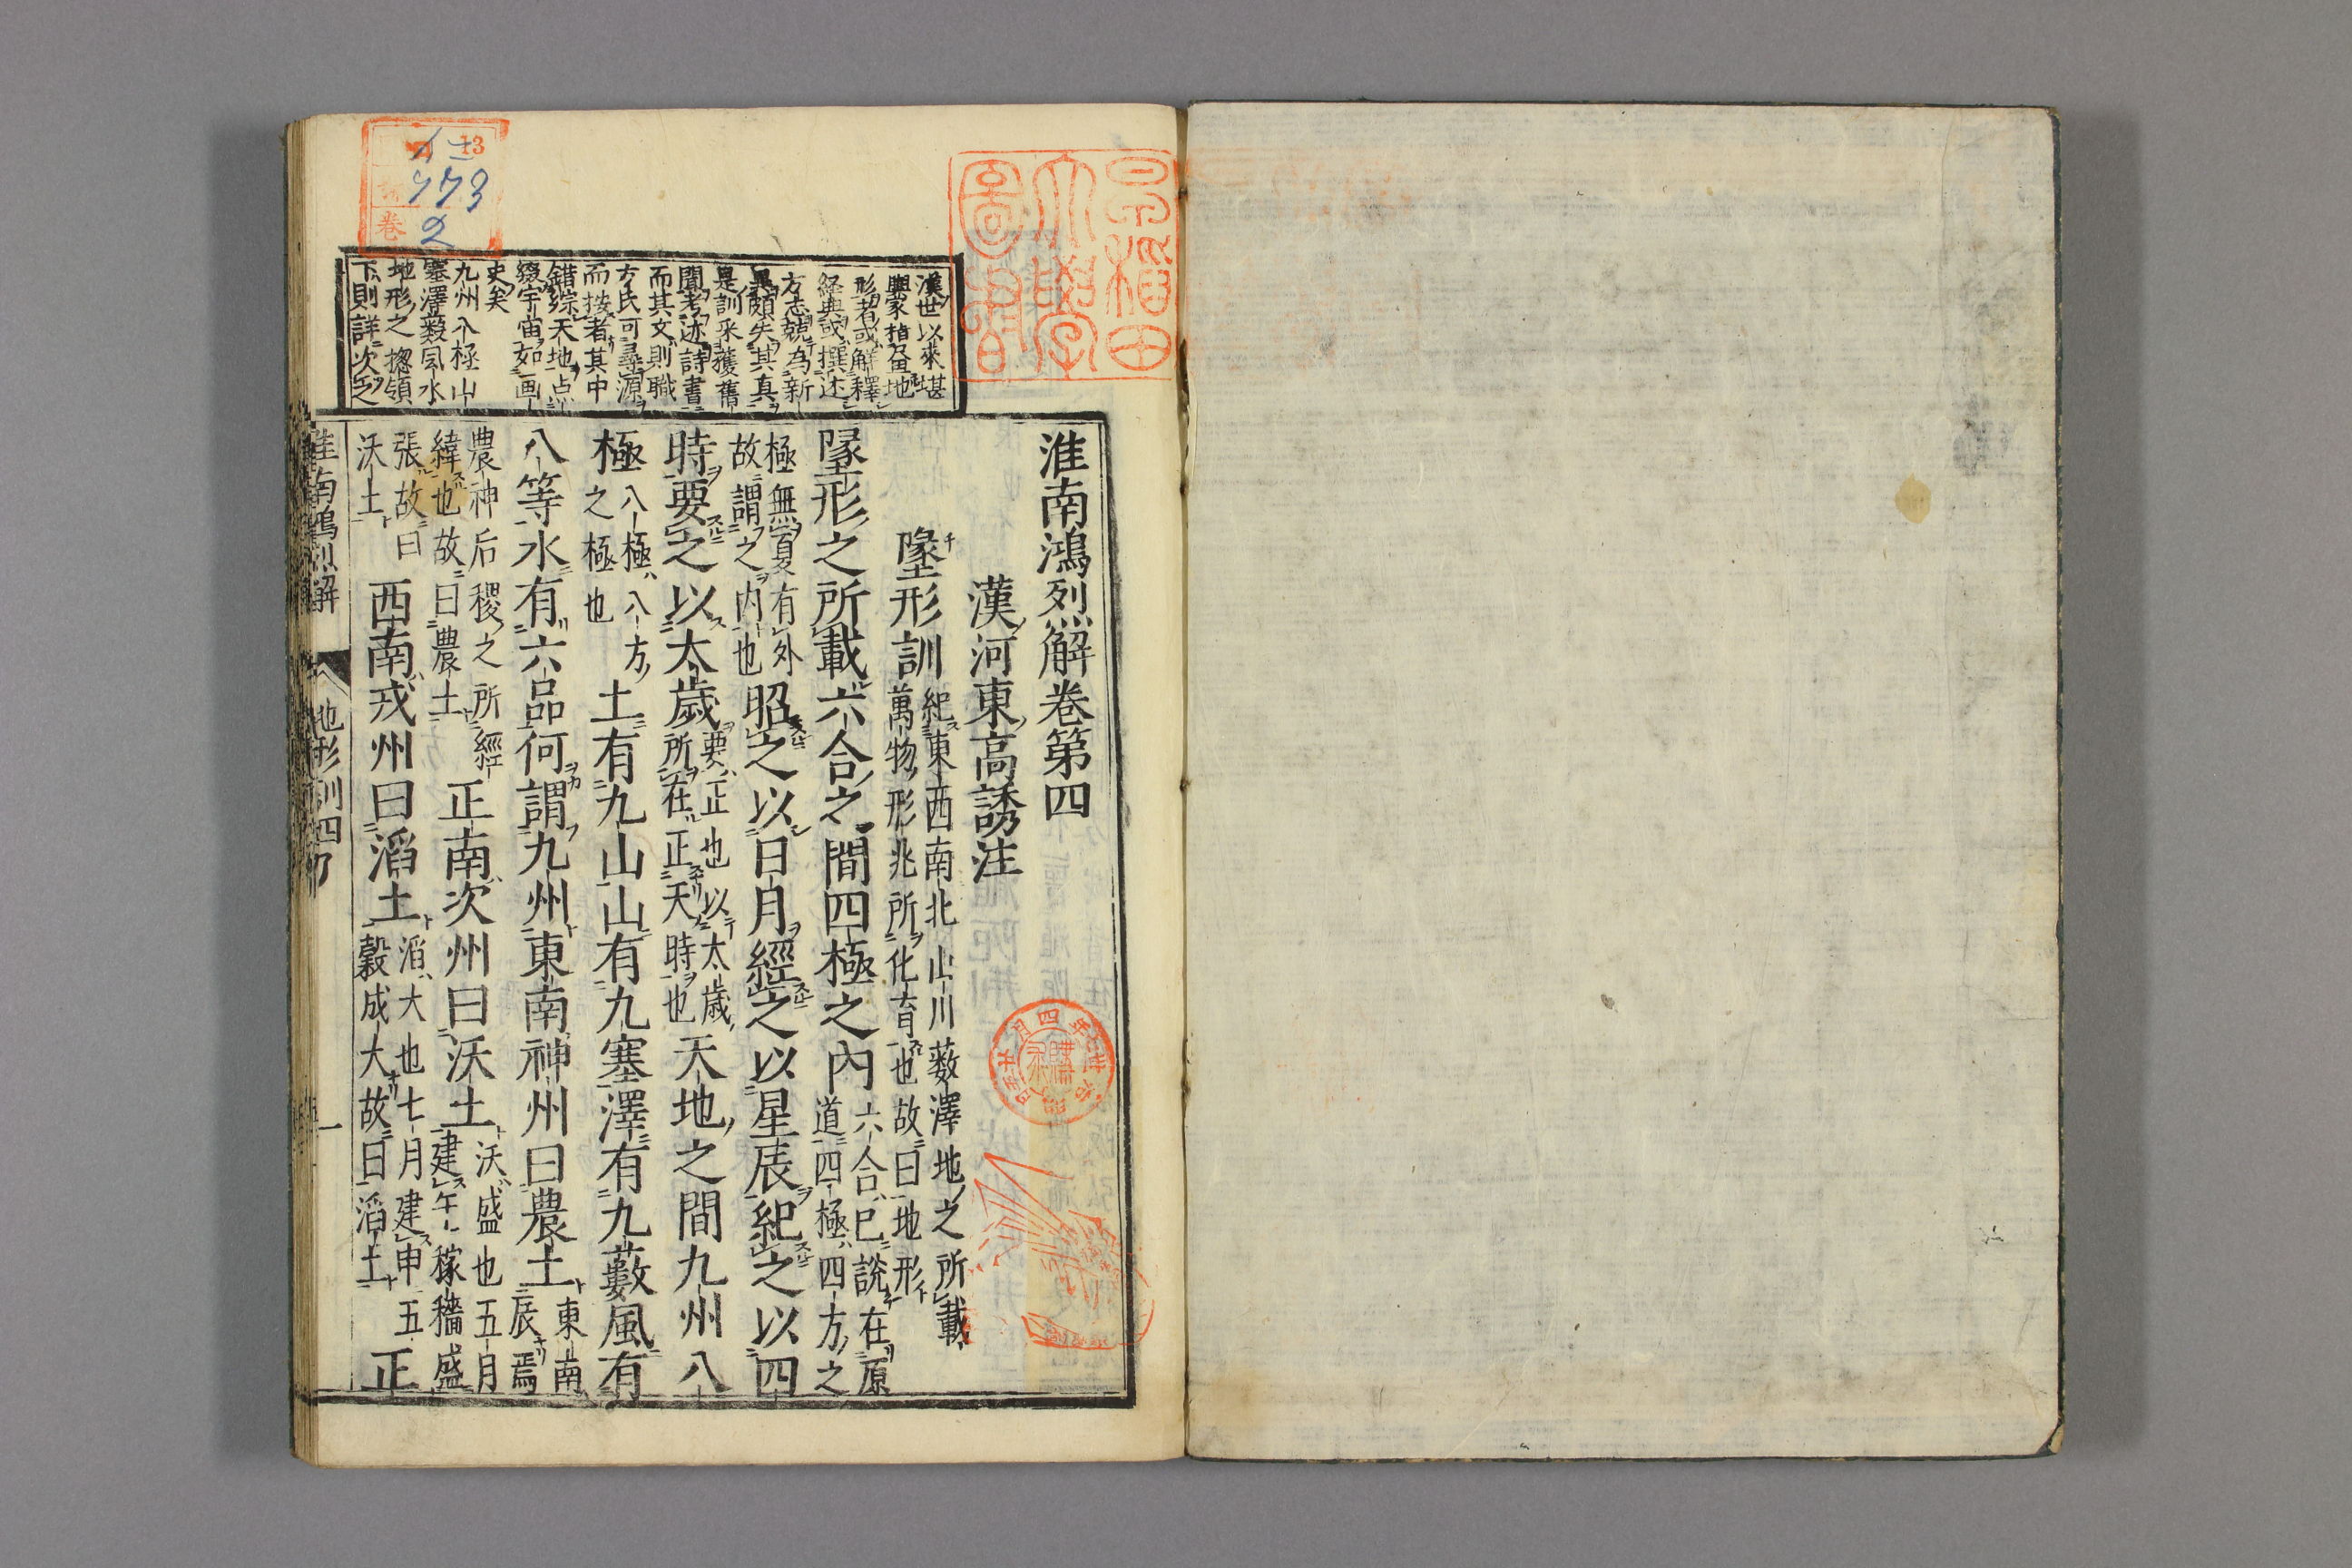 淮南鴻烈解卷第四
漢河東高誘注
墬形訓
紀東西南北山川薮澤地之所載
萬物形兆所化育也故曰地形
墬形之所載六合之間四極之內
六合已說在原
道四極四方之
極無夏有外
故謂之内也
昭之以日月經之以星辰紀之以四
時要之以太歲
要正也以太歲
所在正天時也
天地之間九州八
極
八極八方
之極也
土有九山山有九塞澤有九藪風有
八等水有六品何謂九州東南神州曰農土
東南
辰焉
農神后稷之所經
緯也故曰農土
正南次州曰沃土
沃盛也五月
建午稼穡盛
張故曰
沃土
西南戎州曰滔土
滔大也七月建申五
穀成大故曰滔土
正
漢世以來堪
輿家指畨地
形者或解釋
経典或撰述
方志競為新
異頗失其真
是訓采獲舊
聞考迹詩書
而其文則職
方氏可尋源
而按者其中
錯綜天地点
綴宇宙如画
史矣
九州八極山
塞澤薮風水
地形之揔領
下則詳次之
淮南鴻烈解
地形訓四
一
早稻田
大學
圖書
13
773
卷
2